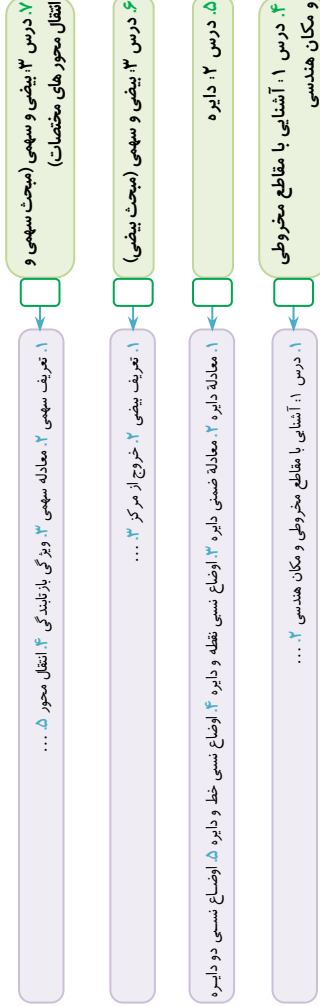 ۴. درس ۱: آشنایی با مقاطع مخروطی
و مکان هندسی
۱. درس ۱: آشنایی با مقاطع مخروطی و مکان هندسی ۲. ...
۵. درس ۲: دایره
۱. معادلهٔ دایره ۲. معادلهٔ ضمنی دایره ۳. اوضاع نسبی نقطه و دایره ۴. اوضاع نسبی خط و دایره ۵. اوضاع نسبی دو دایره
۶. درس ۳: بیضی و سهمی (مبحث بیضی)
۱. تعریف بیضی ۲. خروج از مرکز ۳. ...
۷. درس ۳: بیضی و سهمی (مبحث سهمی و
انتقال محور های مختصات)
۱. تعریف سهمی ۲. معادله سهمی ۳. ویژگی بازتابندگی ۴. انتقال محور ۵. ...